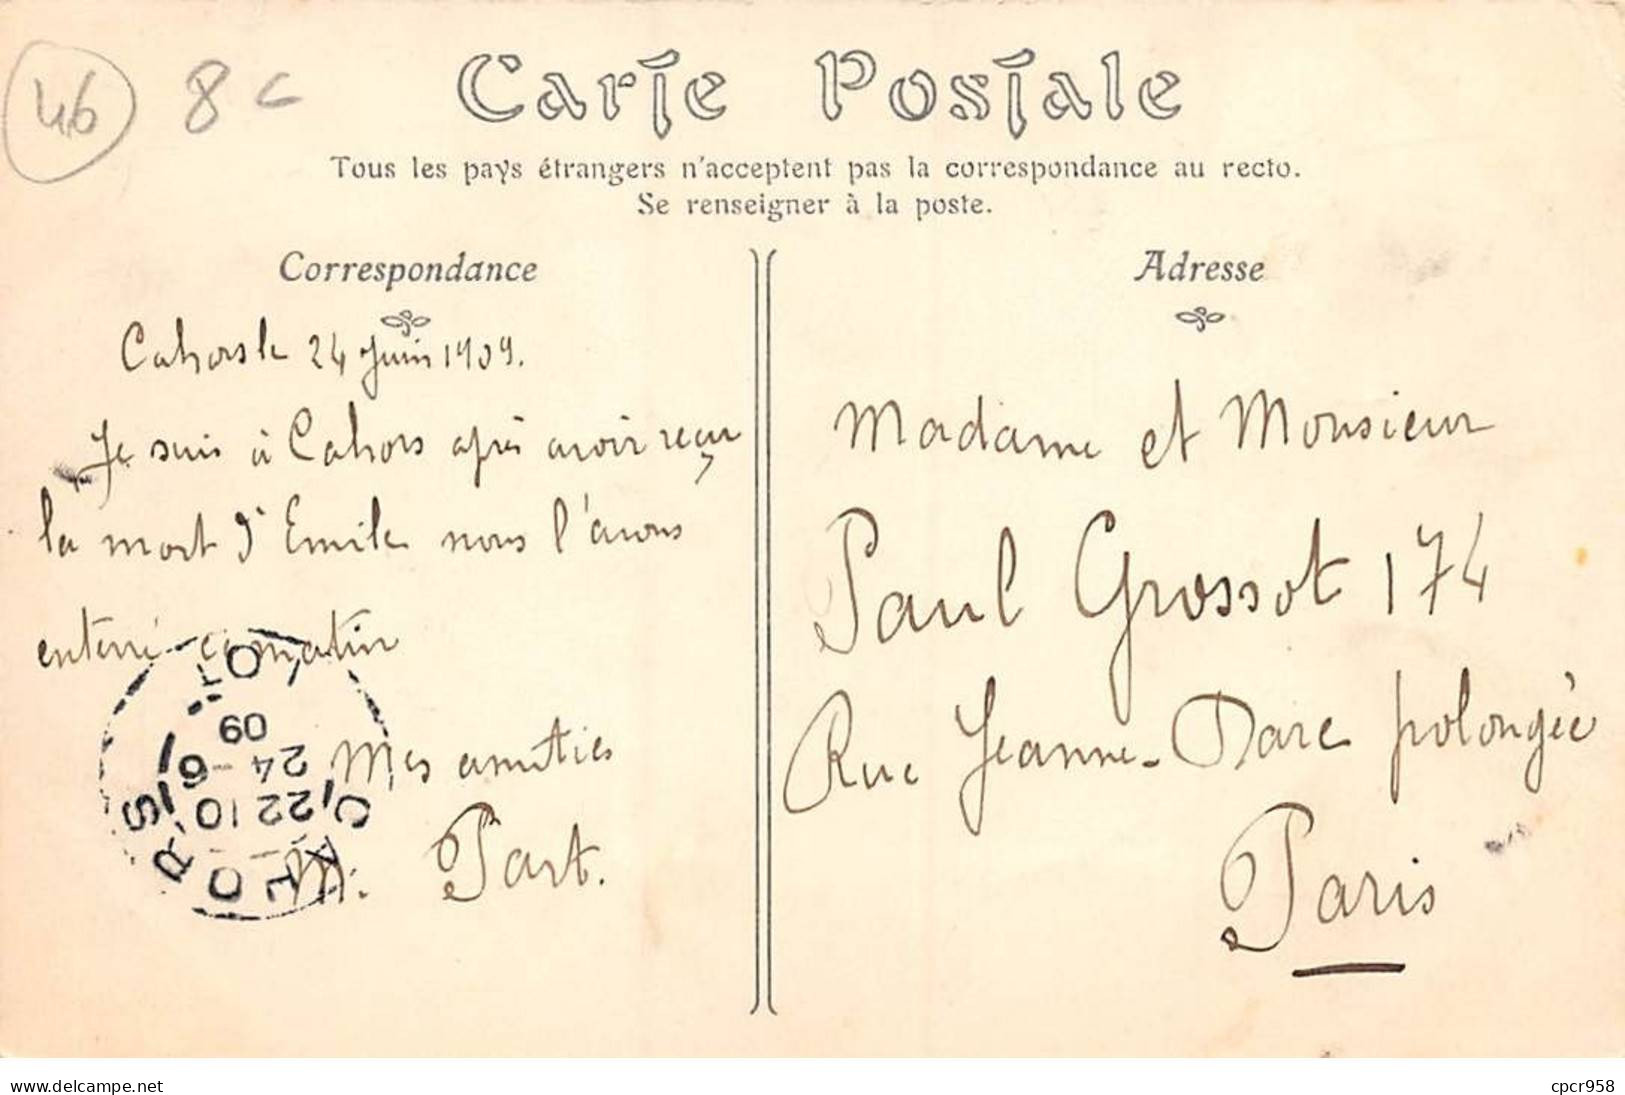 46 8c
Carte Postale
Tous les pays étrangers n'acceptent pas la correspondance au recto.
Se renseigner à la poste.
Correspondance
Cahors le 24 Juin 1909.
Je suis à Cahors après avoir reçu
la mort d'Emile nous l'avons
enterré ce matin
Mes amitiés
M. Part.
CAHORS
LOT
22 10
24 - 6
09
Adresse
Madame et Monsieur
Paul Grossot 174
Rue Jeanne-Darc polongée
Paris
www.delcampe.net
cpcr958